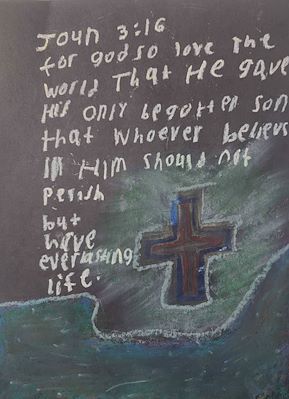 John 3:16
for god so love The
world That He gave
His ONLY begotten son
that whoever believes
IN HIM should not
perish
but
have
everlasting
life.